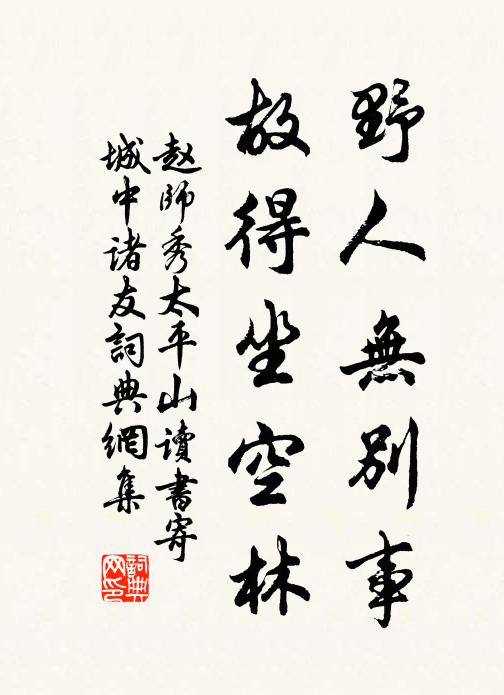 野人無別事
故得坐空林
赵師秀太平山讀書寄
城中诸友詞典網集
詞典
网印